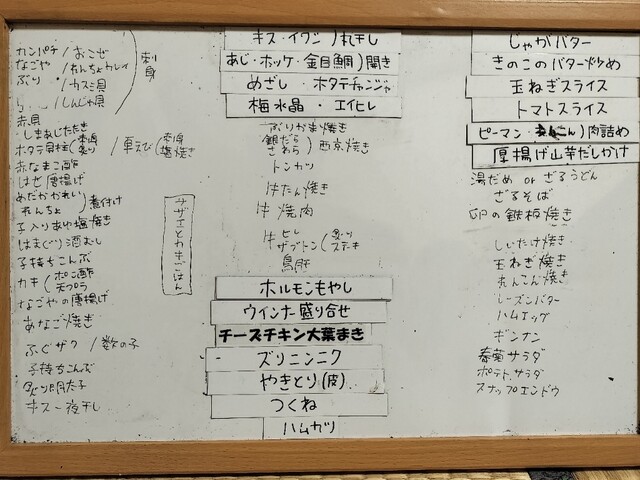 カンパチ/おこぜ
なごや/れんちょカレイ
ぶり/カスミ貝
しんじゅ貝
刺身
赤貝
しまあじたたき
ホタテ貝柱(刺身 炙り
車えび(刺身 塩焼き
赤なまこ酢
はぜ唐揚げ
めだかかれい
れんちょ)煮付け
子入りあゆ塩焼き
はまぐり酒むし
子持ちこんぶ
カキ(ポン酢 天プラ
なごやの唐揚げ
あなご焼き
ふぐザク/数の子
子持ちこんぶ
炙り明太子
キス一夜干し
サザエとわかめごはん
キス・イワシ)丸干し
あじ・ホッケ・金目鯛)開き
めざし・ホタテチャンジャ
梅水晶・エイヒレ
ぶりかま焼き
銀だら
さわら)西京焼き
トンカツ
牛たん焼き
牛焼肉
牛ヒレ
ザブトン(炙り ステーキ
鳥肝
ホルモンもやし
ウインナー盛り合せ
チーズチキン大葉まき
ズリニンニク
やきとり(皮)
つくね
ハムカツ
じゃがバター
きのこのバター炒め
玉ねぎスライス
トマトスライス
ピーマン・れんこん)肉詰め
厚揚げ山芋だしかけ
湯だめ or ざるうどん
ざるそば
卵の鉄板焼き
しいたけ焼き
玉ねぎ焼き
れんこん焼き
レーズンバター
ハムエッグ
ギンナン
春菊サラダ
ポテトサラダ
スナップエンドウ